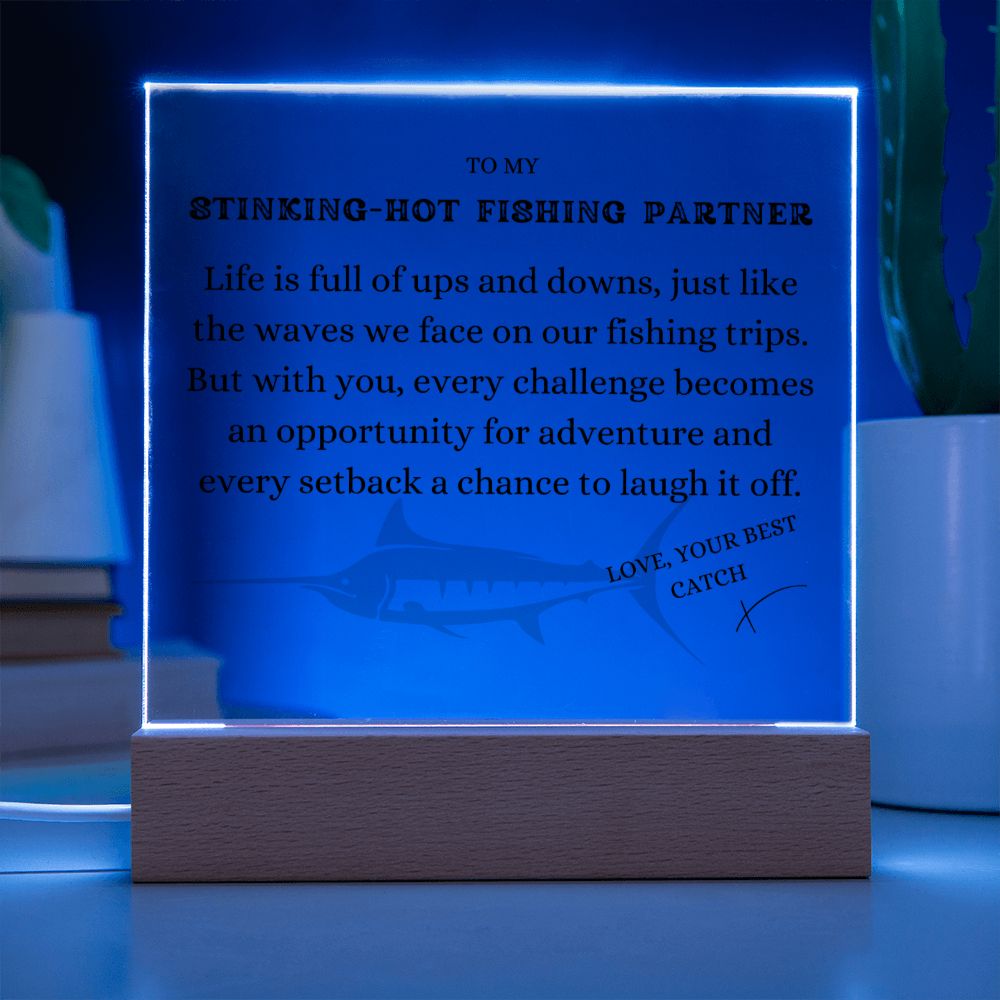 TO MY
STINKING-HOT FISHING PARTNER
Life is full of ups and downs, just like
the waves we face on our fishing trips.
But with you, every challenge becomes
an opportunity for adventure and
every setback a chance to laugh it off.
LOVE, YOUR BEST
CATCH
X